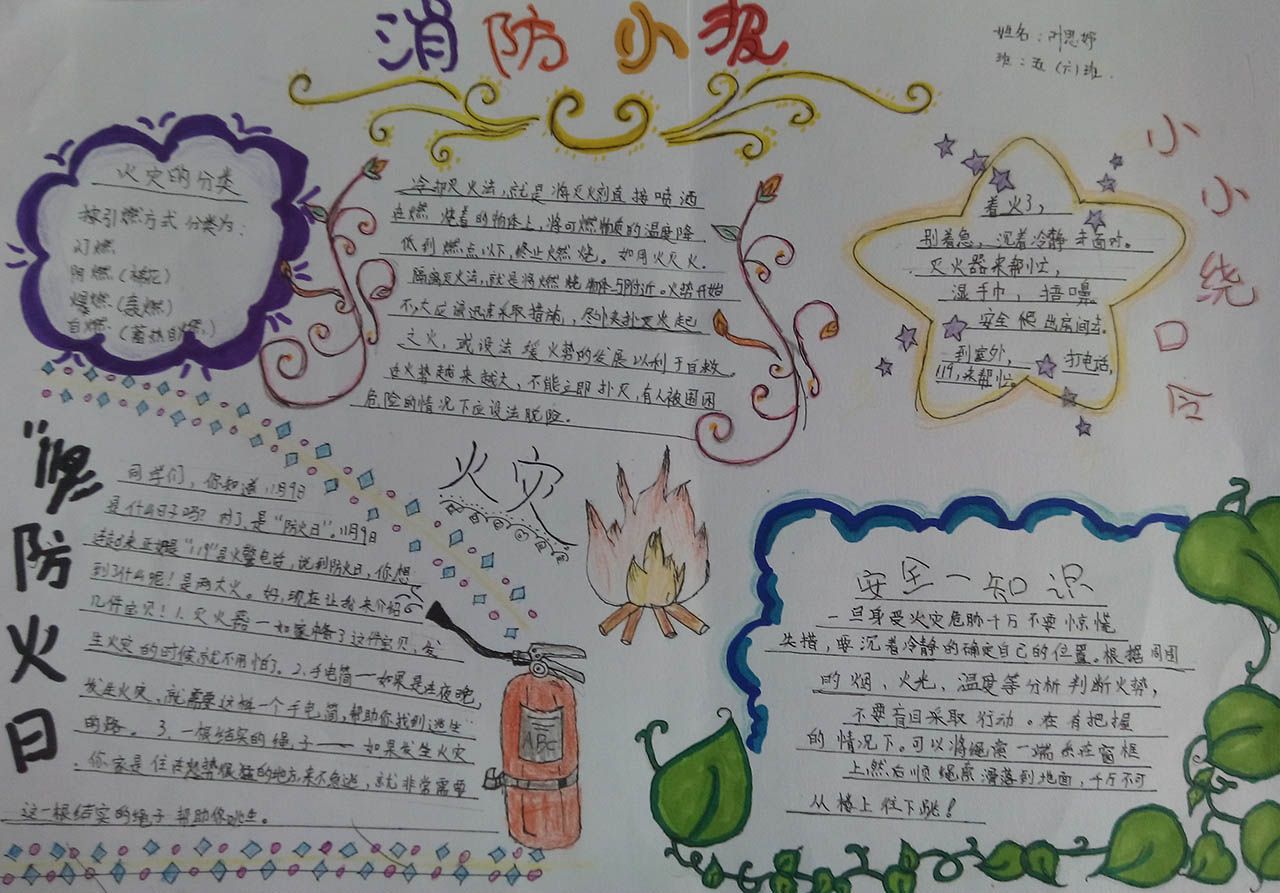 消防小报
姓名：刘思婷
班：五（六）班
火灾的分类
按引燃方式分类为：
闪燃
阴燃
爆燃（轰燃）
自燃（蓄热自燃）
冷却灭火法，就是将灭火剂直接喷洒
在燃烧着的物体上，将可燃物质的温度降
低到燃点以下，终止燃烧。如用水灭火.
隔离灭火法，就是将燃烧物体与附近。火势开始
不大应该迅速采取措施，尽快扑灭火起
之火，或设法缓火势的发展以利于自救。
达火势越来越大，不能立即扑灭，有人被围困
危险的情况下应设法脱险.
小小绕口令
着火了，
别着急，沉着冷静来面对。
灭火器来帮忙，
湿手巾，捂嘴
安全爬出房间去。
到室外，打电话，
119，来帮忙。
火灾
防火日
同学们，你知道11月9日
是什么日子吗？对了，是“防火日”。11月9日
连起来正好是“119”是火警电话，说到防火日，你想
到了什么呢！是两大火。好，现在让我来介绍
几件宝贝！1.灭火器—如家备了这件宝贝，发
生火灾的时候就不用怕了。2.手电筒—如果是在夜晚，
发生火灾，就需要这样一个手电筒，帮助你找到逃生
的路。3.一根结实的绳子——如果发生火灾
，你家是住在火势很猛的地方，来不急逃，就非常需要
这一根结实的绳子帮助你逃生。
ABC
安全一知识
一旦身受火灾危胁千万不要惊慌
失措，要沉着冷静的确定自己的位置。根据周围
的烟、火光、温度等分析判断火势，
不要盲目采取行动。在有把握
的情况下。可以将绳索一端系在窗框
上，然后顺绳索滑落到地面，千万不可
从楼上往下跳！